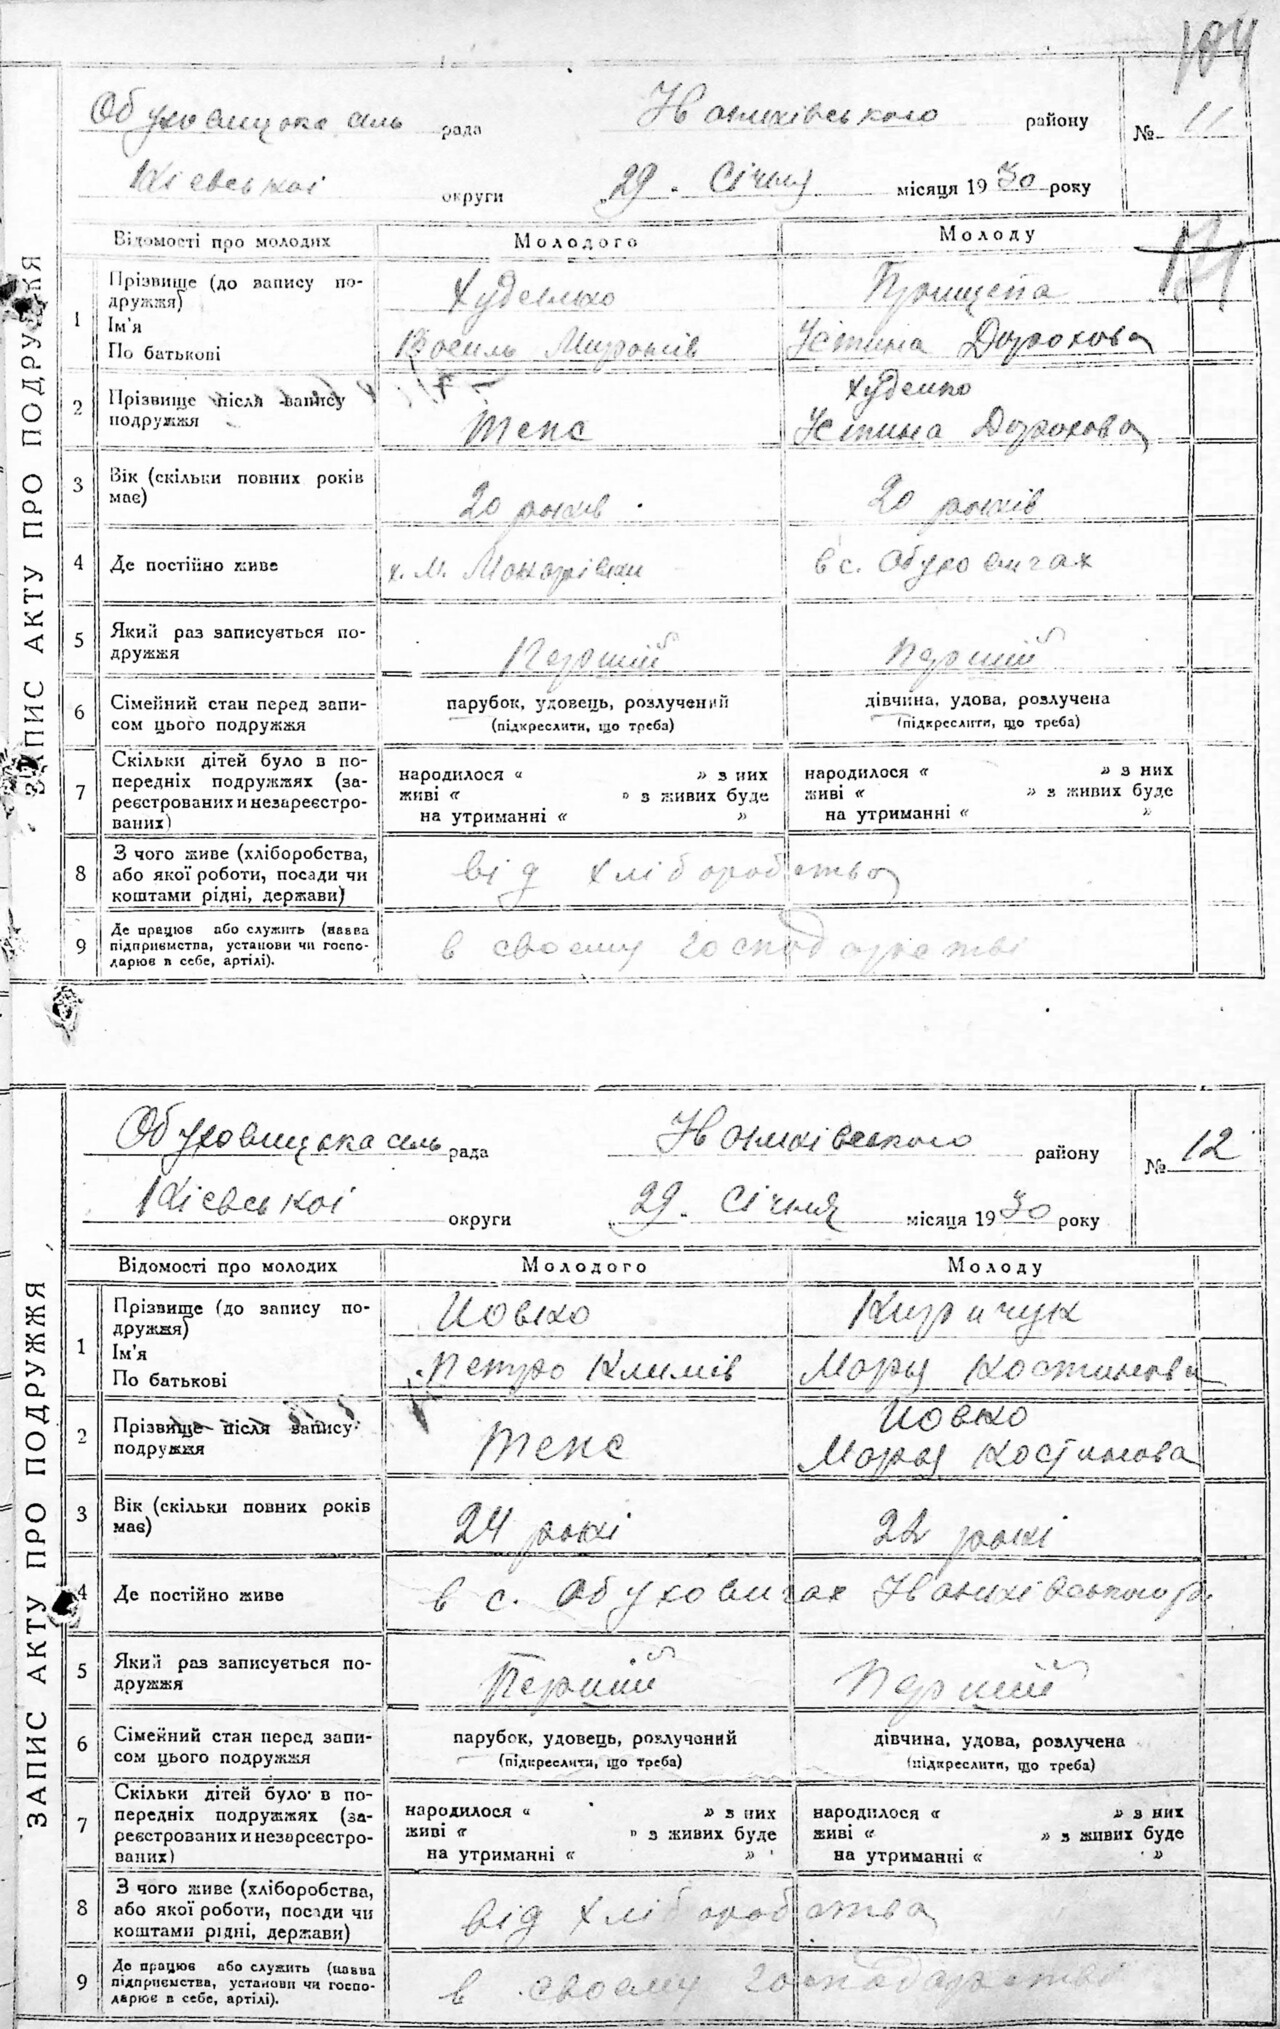 104
Обуховицька сіль рада Іванківського району № 11
Кієвської округи „29" Січня місяця 1930 року
ЗАПИС АКТУ ПРО ПОДРУЖЖЯ
Відомості про молодих Молодого Молоду
1 Прізвище (до запису по-
дружжя) Худенко Прищепа
Ім'я
По батькові Василь Миронів Устина Дорохова
2 Прізвище після запису
подружжя Теке Худенко
Устина Дорохова
3 Вік (скільки повних років
має) 20 років 20 років
4 Де постійно живе х. М. Макарівки в с. Обуховичах
5 Який раз записується по-
дружжя Перший перший
6 Сімейний стан перед запи-
сом цього подружжя парубок, удовець, розлучений дівчина, удова, розлучена
(підкреслити, що треба) (підкреслити, що треба)
7 Скільки дітей було в по-
передніх подружжях (за-
реєстрованих и незареєстро-
ваних)
народилося “ ” з них народилося “ ” з них
живі “ ” з живих буде живі “ ” з живих буде
на утриманні “ ” на утриманні “ ”
8 З чого живе (хліборобства,
або якої роботи, посади чи
коштами рідні, держави) від хліборобства
9 Де працює або служить (назва
підприємства, установи чи госпо-
дарює в себе, артілі). в своему господарстві
Обуховицька сіль рада Іванківського району № 12
Кієвської округи „29" Січня місяця 1930 року
ЗАПИС АКТУ ПРО ПОДРУЖЖЯ
Відомості про молодих Молодого Молоду
1 Прізвище (до запису по-
дружжя) Йовко Киричук
Ім'я
По батькові Петро Климів Марія Костинова
2 Прізвище після запису
подружжя Теке Йовко
Марія Костинова
3 Вік (скільки повних років
має) 24 рокі 22 рокі
4 Де постійно живе в с. Обуховичах Іванківського р.
5 Який раз записується по-
дружжя Перший перший
6 Сімейний стан перед запи-
сом цього подружжя парубок, удовець, розлучений дівчина, удова, розлучена
(підкреслити, що треба) (підкреслити, що треба)
7 Скільки дітей було в по-
передніх подружжях (за-
реєстрованих и незареєстро-
ваних)
народилося “ ” з них народилося “ ” з них
живі “ ” з живих буде живі “ ” з живих буде
на утриманні “ ” на утриманні “ ”
8 З чого живе (хліборобства,
або якої роботи, посади чи
коштами рідні, держави) від хліборобства
9 Де працює або служить (назва
підприємства, установи чи госпо-
дарює в себе, артілі). в своему господарстві